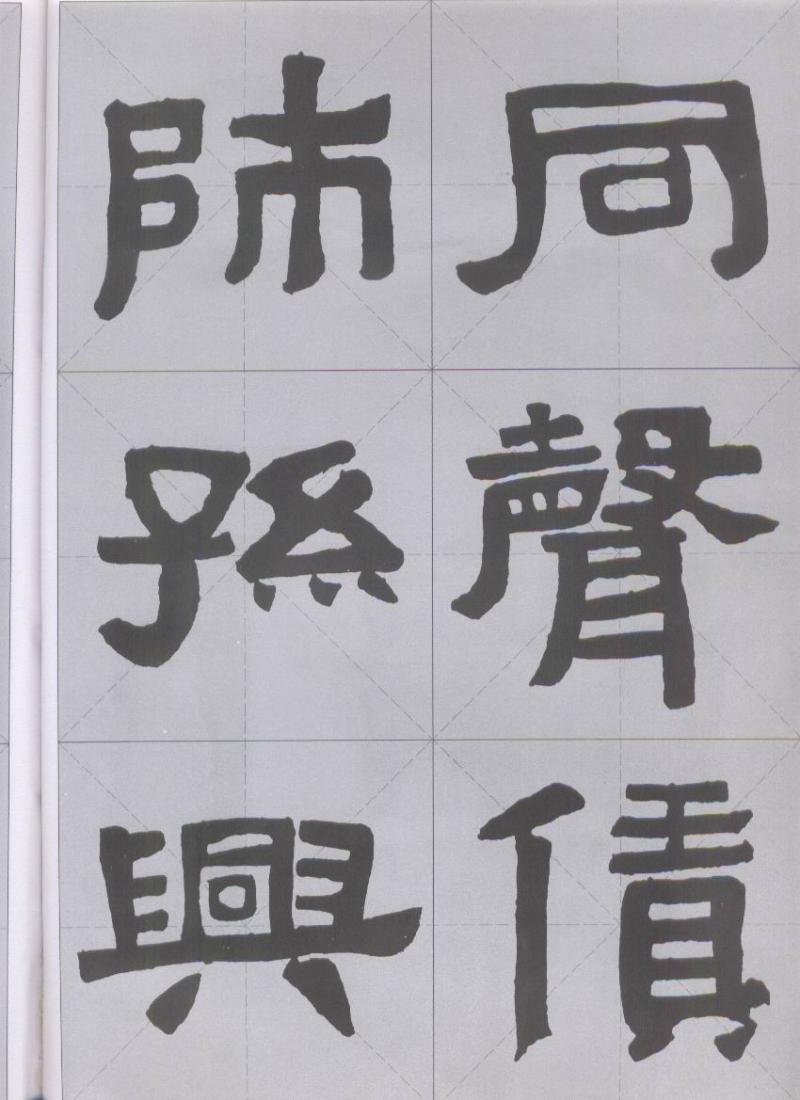 同聲賃
師孫興